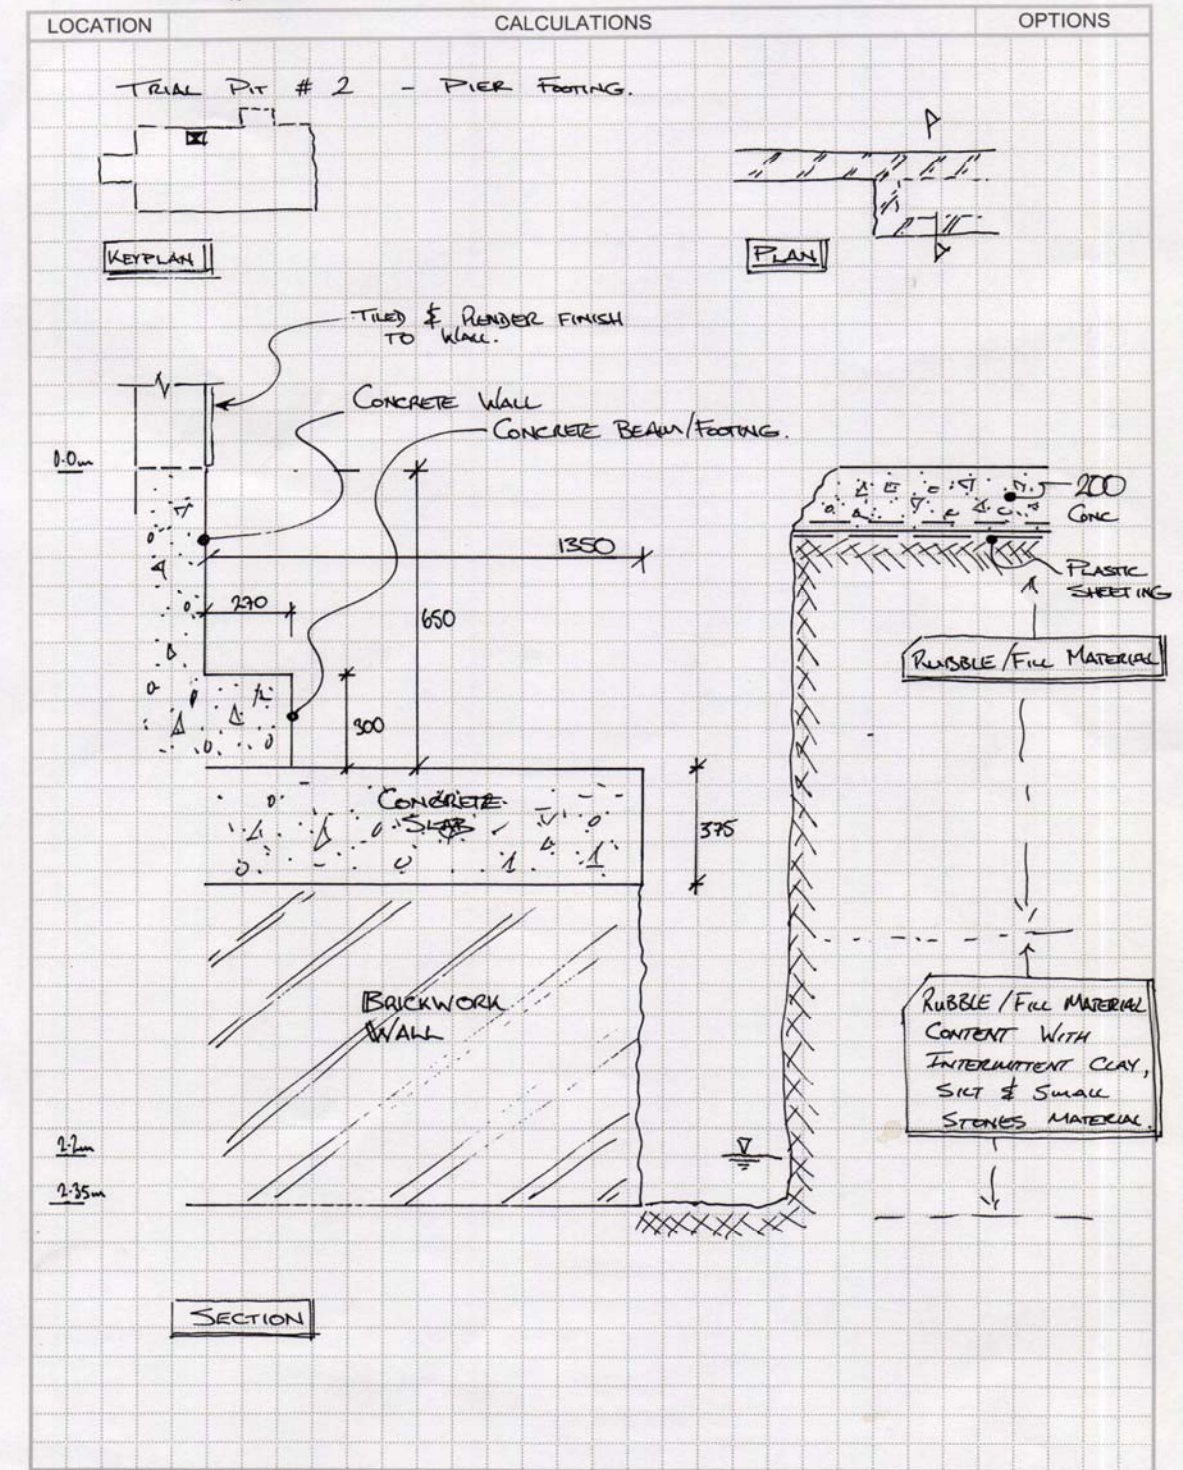 LOCATION
CALCULATIONS
OPTIONS
TRIAL PIT # 2 - PIER FOOTING.
KEYPLAN
PLAN
TILED & RENDER FINISH
TO WALL.
CONCRETE WALL
CONCRETE BEAM/FOOTING.
0.0m
200
CONC
1350
PLASTIC
SHEETING
270
650
RUBBLE/FILL MATERIAL
300
CONCRETE
SLAB
375
BRICKWORK
WALL
RUBBLE/FILL MATERIAL
CONTENT WITH
INTERMITTENT CLAY,
SILT & SMALL
STONES MATERIAL.
2.2m
2.35m
SECTION